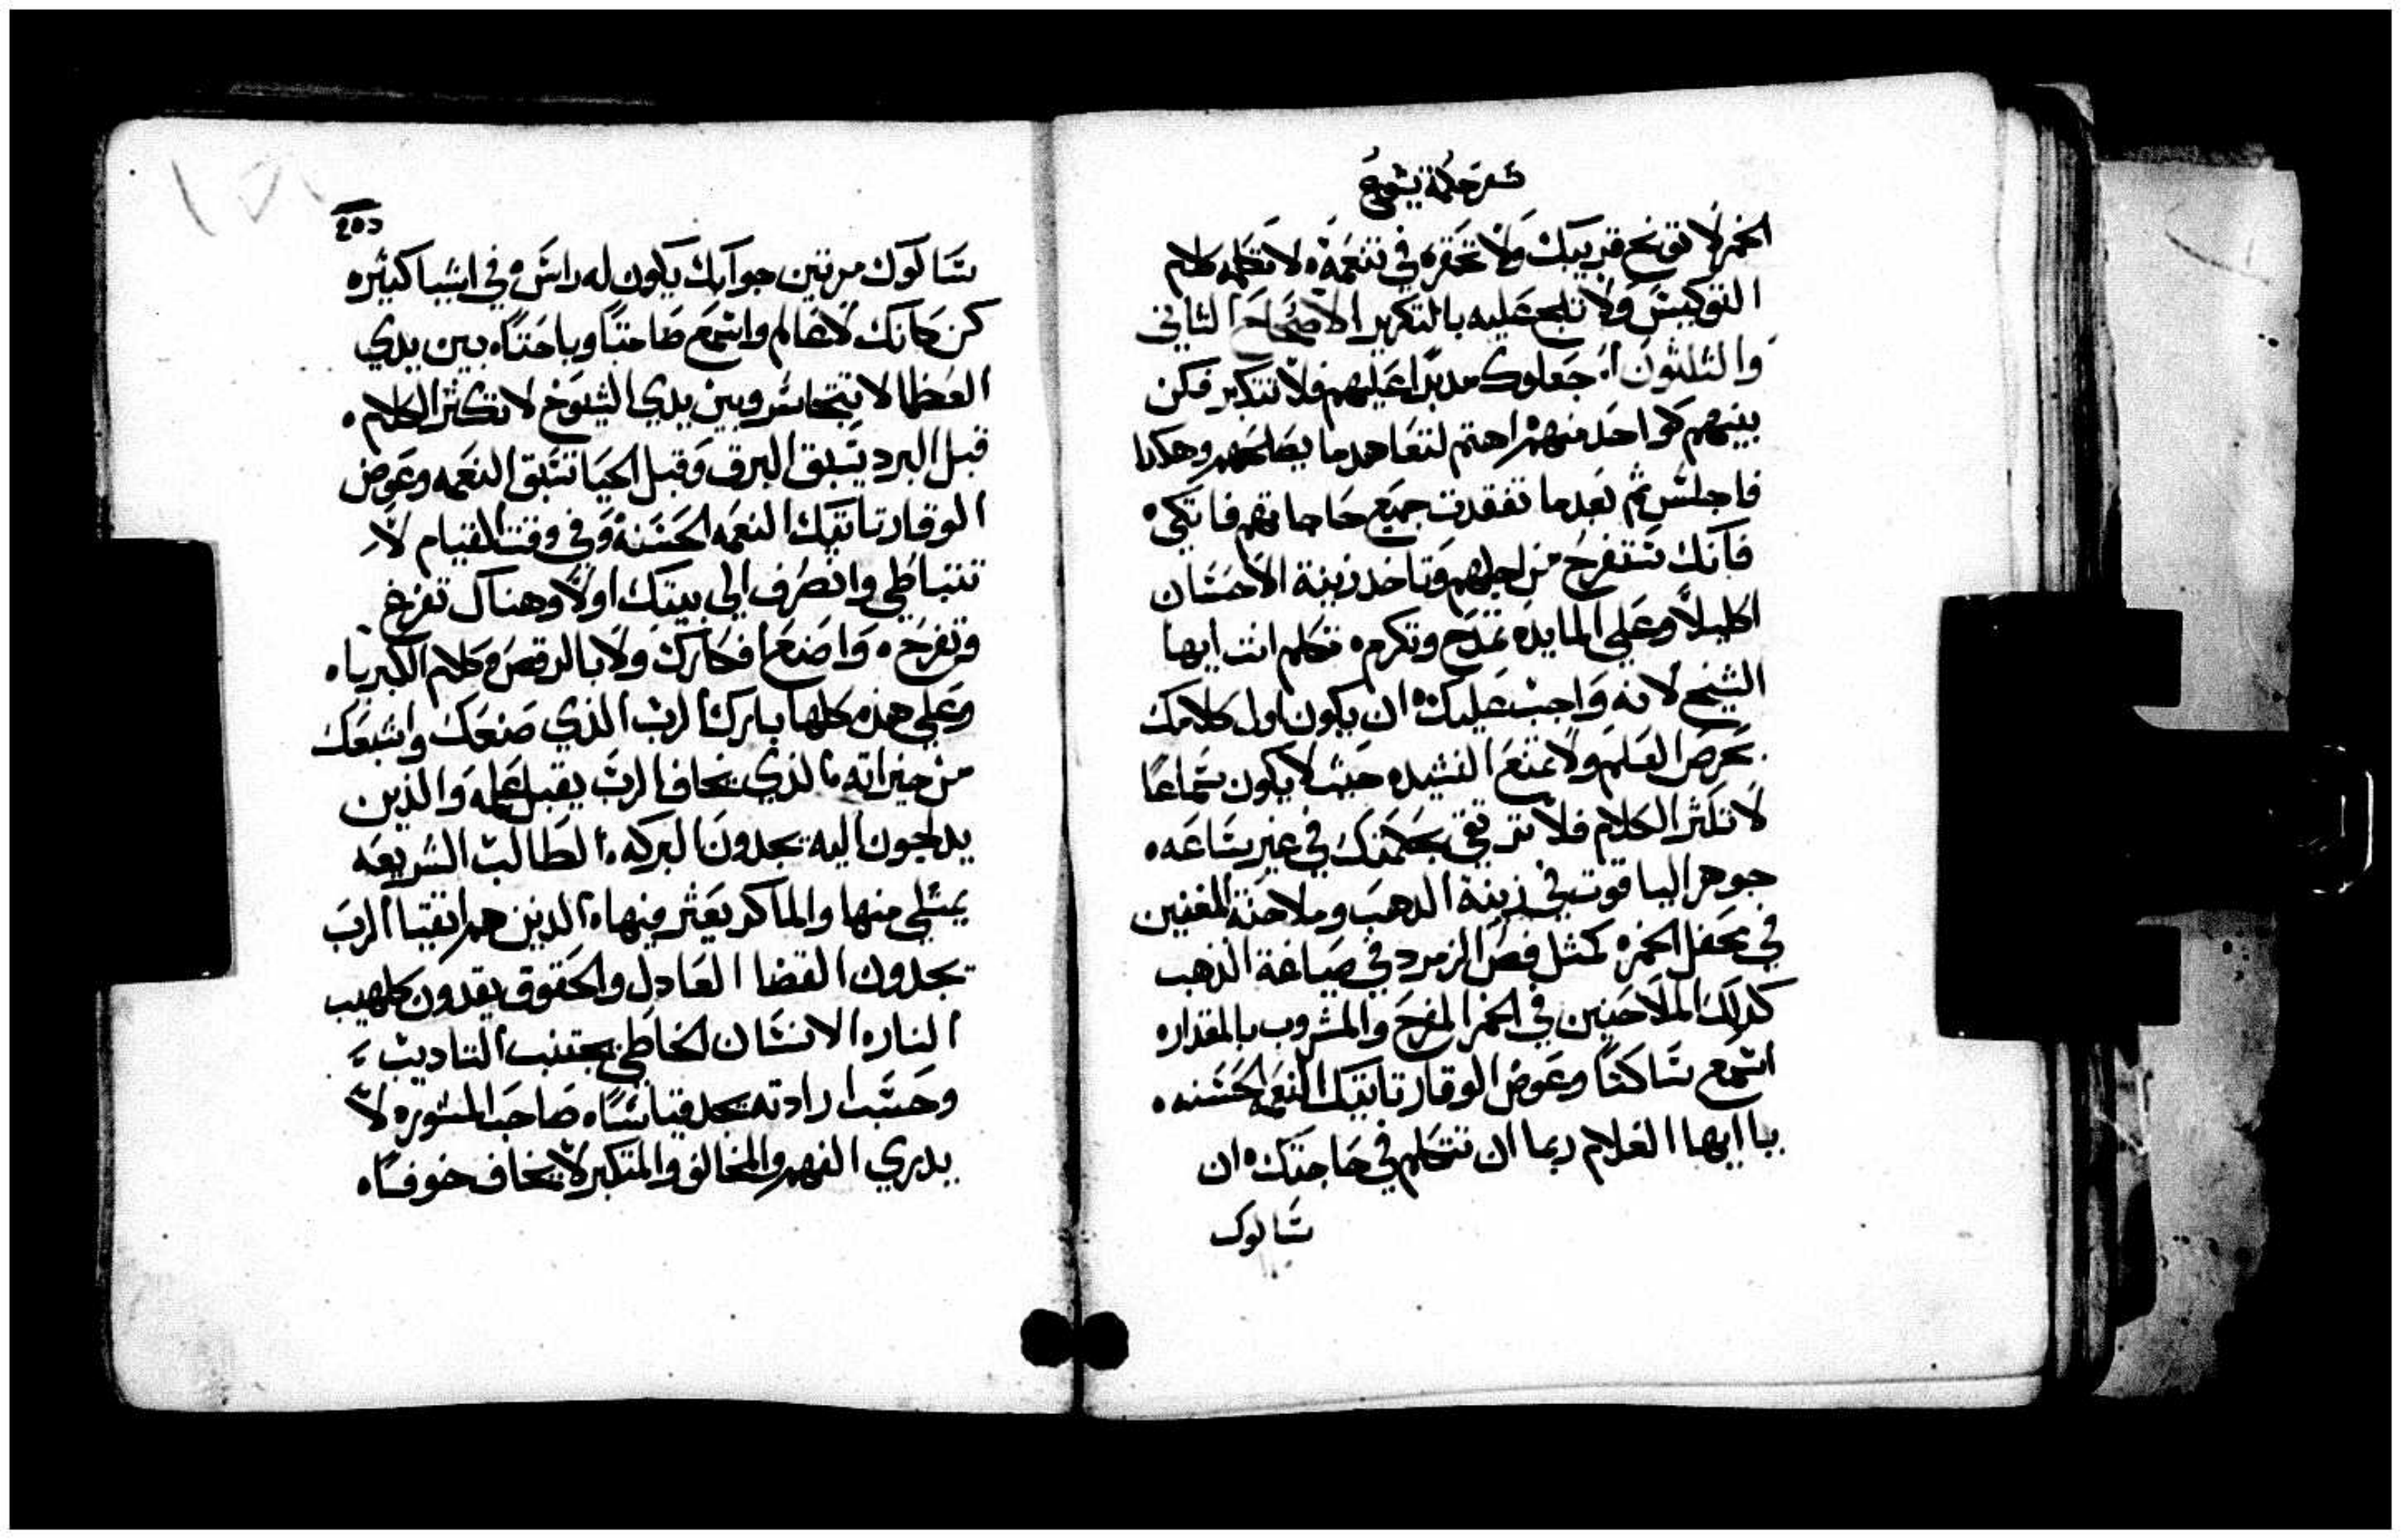 سفر حكمة يشوع
الخمر لا توبخ قريبك ولا تحقره في تنعمه ولا تكلمه كلام
التوكبيس ولا تلح عليه بالتكرير الاصحاح الثاني
والثلثون ان جعلوك مدبرا عليهم فلا تتكبر فكن
بينهم كواحد منهم اهتم لتعاهد ما يصلحهم وهكدا
فاجلس ثم بعد ما تفقدت جميع حاجاتهم فاتكى
فانك ستفرح من اجلهم وتاخد زينة الاحسان
اكليلا وعلي المايده تمدح وتكرم تكلم انت ايها
الشيخ لانه واجب عليك ان يكون اول كلامك
بحرص العلم ولا تمنع النشيده حيث لا يكون سماعا
لا تكثر الكلام فلا ترتقي بحكمتك في غير ساعه
جوهر الياقوت في زينة الدهب وملاحنة المغنين
في محفل الخمره كمثل فص الزمرد في صياغة الذهب
كدلك الملاحنين في الخمر المفرح والمشروب بالمقدار
اسمع ساكتا وعوض الوقار تاتيك النعمه الحسنه
يا ايها الغلام ربما ان تتكلم في حاجتك ان
سالوك
205
سالوك مرتين جوابك يكون له راس وفي اشيا كثيره
كن كانك لا عالم واسمع صامتا وباحتا بين يدي
العظما لا تتجاسر وبين يدي الشيوخ لا تكثر الكلام
قبل البرد يسبق البرق وقبل الحيا تسبق النعمه وعوض
الوقار تاتيك النعمه الحسنة وفي وقت القيام لا
تتباطي وانصرف الي بيتك اولا وهناك تفرغ
وتفرح واصنع افكارك ولا بالرقص وكلام الكبريا
وعلي هذه كلها بارك الرب الذي صنعك واشبعك
من خيراته الذي يخاف الرب يقبل علمه والذين
يدلجون اليه يجدون البركه الطالب الشريعه
يمتلي منها والماكر يعثر فيها الدين هم اتقيا الرب
يجدون القضا العادل والحقوق يقدون كلهيب
النار الانسان الخاطي يجتنب التاديب
وحسب ارادته يجد قياسا صاحب المشوره لا
يدري الفهم والمخالف والمتكبر لا يخاف خوفا